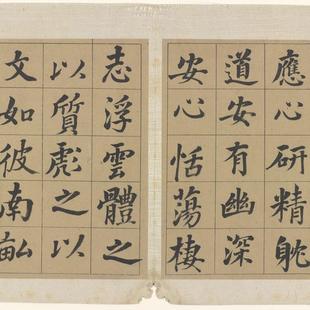 應心研精躭
道安有幽深
安心恬蕩棲
志浮雲體之
以質彪之以
文如彼南畝